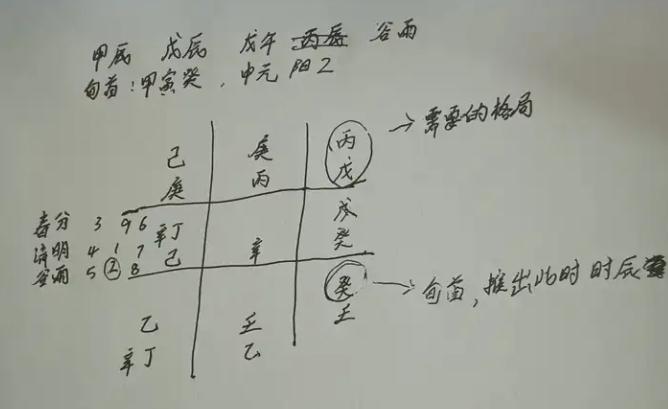 甲辰 戊辰 戊午 丙辰 谷雨
旬首:甲寅癸,中元 阳2
己 庚 丙 → 需要的格局
庚 丙 戊
春分 3 9 6 辛丁 戊
清明 4 1 7 己 辛 癸
谷雨 5 ② 8 癸 → 旬首,推出此时时辰
乙 壬 壬
辛丁 乙